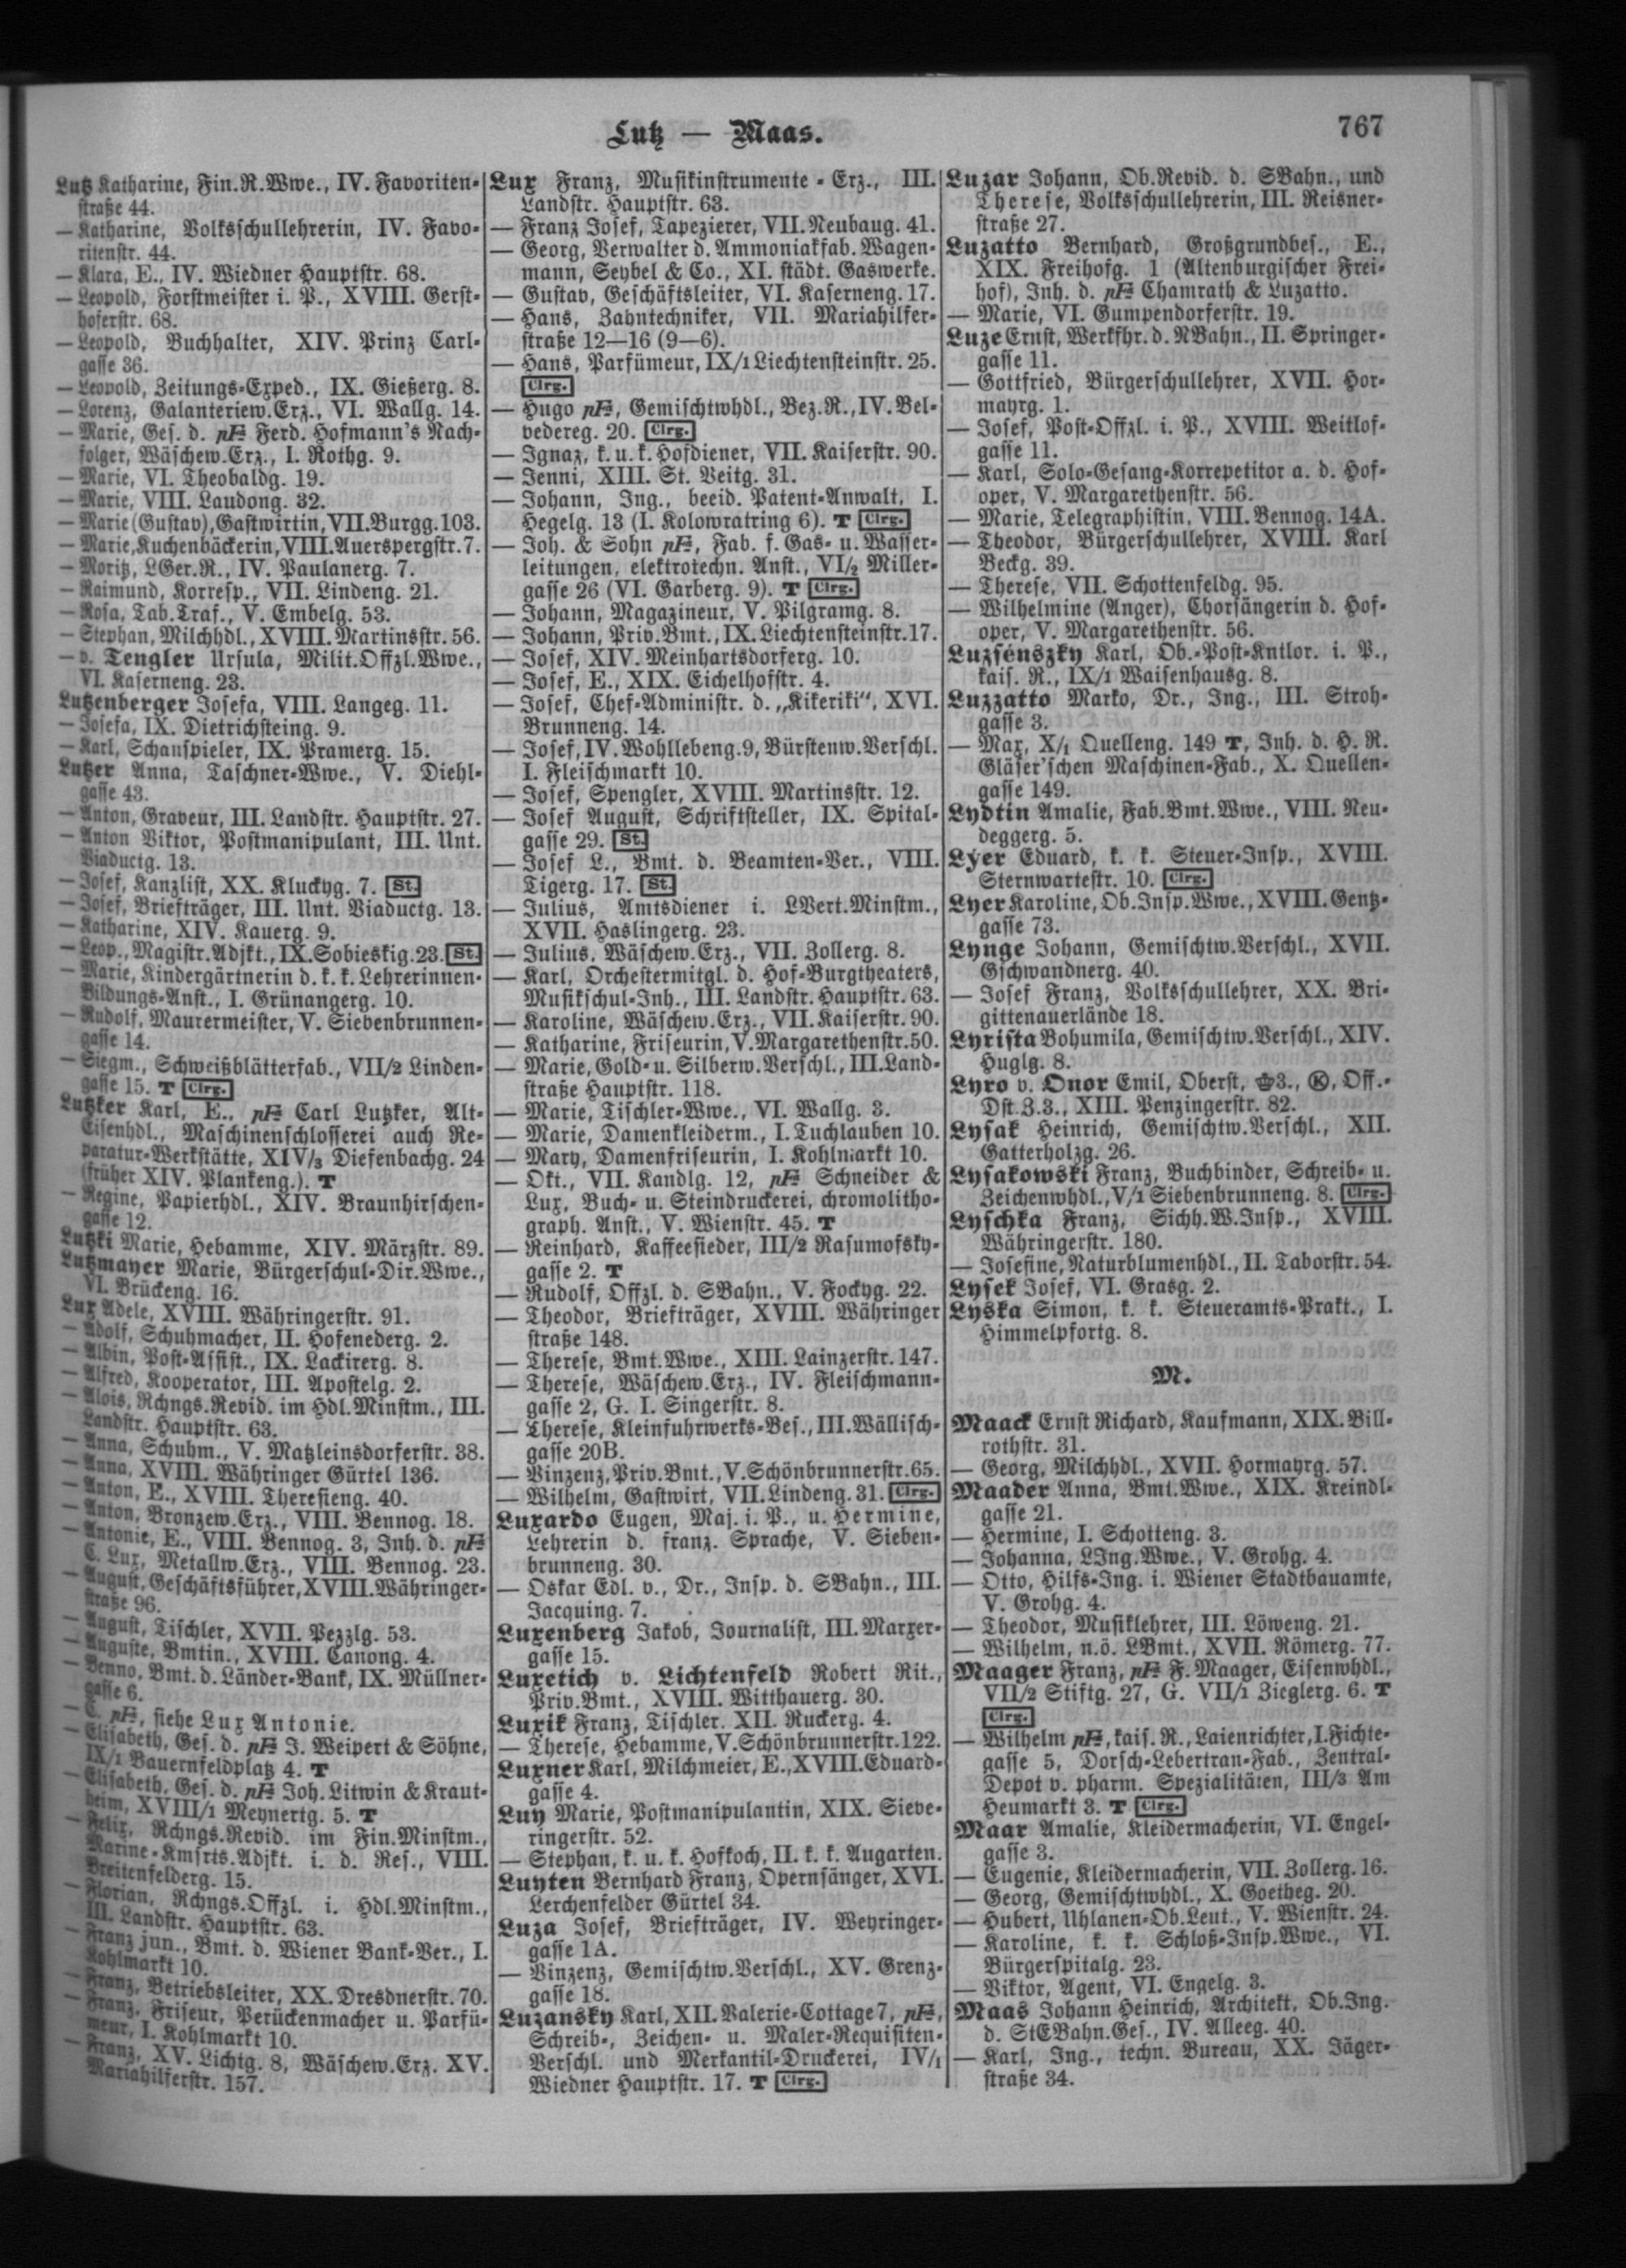 Lutz — Maas.
767
Lutz Katharine, Fin.R.Wwe., IV. Favoriten-
straße 44.
— Katharine, Volksschullehrerin, IV. Favo-
ritenstr. 44.
— Klara, E., IV. Wiedner Hauptstr. 68.
— Leopold, Forstmeister i. P., XVIII. Gerst-
hoferstr. 68.
— Leopold, Buchhalter, XIV. Prinz Carl-
gasse 36.
— Leopold, Zeitungs-Exped., IX. Gießerg. 8.
— Lorenz, Galanteriew.Erz., VI. Wallg. 14.
— Marie, Ges. d. pF Ferd. Hofmann's Nach-
folger, Wäschew.Erz., I. Rothg. 9.
— Marie, VI. Theobaldg. 19.
— Marie, VIII. Laudong. 32.
— Marie (Gustav), Gastwirtin, VII. Burgg. 103.
— Marie, Kuchenbäckerin, VIII. Auerspergstr. 7.
— Moritz, LGer.R., IV. Paulanerg. 7.
— Raimund, Korresp., VII. Lindeng. 21.
— Rosa, Tab.Traf., V. Embelg. 53.
— Stephan, Milchhdl., XVIII. Martinsstr. 56.
— v. Tengler Ursula, Milit.Offzl.Wwe.,
VI. Kaserneng. 23.
Lutzenberger Josefa, VIII. Langeg. 11.
— Josefa, IX. Dietrichsteing. 9.
— Karl, Schauspieler, IX. Pramerg. 15.
Lutzer Anna, Taschner-Wwe., V. Diehl-
gasse 43.
— Anton, Graveur, III. Landstr. Hauptstr. 27.
— Anton Viktor, Postmanipulant, III. Unt.
Viaductg. 13.
— Josef, Kanzlist, XX. Kluckyg. 7. St.
— Josef, Briefträger, III. Unt. Viaductg. 13.
— Katharine, XIV. Kauerg. 9.
— Leop., Magistr.Adjkt., IX. Sobieskig. 23. St.
— Marie, Kindergärtnerin d. k. k. Lehrerinnen-
Bildungs-Anst., I. Grünangerg. 10.
— Rudolf, Maurermeister, V. Siebenbrunnen-
gasse 14.
— Siegm., Schweißblätterfab., VII/2 Linden-
gasse 15. T Clrg.
Lutzker Karl, E., pF Carl Lutzker, Alt-
Eisenhdl., Maschinenschlosserei auch Re-
paratur-Werkstätte, XIV/3 Diefenbachg. 24
(früher XIV. Plankeng.). T
— Regine, Papierhdl., XIV. Braunhirschen-
gasse 12.
Lutzki Marie, Hebamme, XIV. Märzstr. 89.
Lutzmayer Marie, Bürgerschul-Dir.Wwe.,
VI. Brückeng. 16.
Lux Adele, XVIII. Währingerstr. 91.
— Adolf, Schuhmacher, II. Hofenederg. 2.
— Albin, Post-Assist., IX. Lackirerg. 8.
— Alfred, Kooperator, III. Apostelg. 2.
— Alois, Rchngs.Revid. im Hdl.Minstm., III.
Landstr. Hauptstr. 63.
— Anna, Schuhm., V. Matzleinsdorferstr. 38.
— Anna, XVIII. Währinger Gürtel 136.
— Anton, E., XVIII. Theresieng. 40.
— Anton, Bronzew.Erz., VIII. Bennog. 18.
— Antonie, E., VIII. Bennog. 3, Inh. d. pF
C. Lux, Metallw.Erz., VIII. Bennog. 23.
— August, Geschäftsführer, XVIII. Währinger-
straße 96.
— August, Tischler, XVII. Pezzlg. 53.
— Auguste, Bmtin., XVIII. Canong. 4.
— Benno, Bmt. d. Länder-Bank, IX. Müllner-
gasse 6.
— C. pF, siehe Lux Antonie.
— Elisabeth, Ges. d. pF J. Weipert & Söhne,
IX/1 Bauernfeldplatz 4. T
— Elisabeth, Ges. d. pF Joh. Litwin & Kraut-
heim, XVIII/1 Meynertg. 5. T
— Felix, Rchngs.Revid. im Fin.Minstm.,
Marine-Kmsrts.Adjkt. i. d. Res., VIII.
Breitenfelderg. 15.
— Florian, Rchngs.Offzl. i. Hdl.Minstm.,
III. Landstr. Hauptstr. 63.
— Franz jun., Bmt. d. Wiener Bank-Ver., I.
Kohlmarkt 10.
— Franz, Betriebsleiter, XX. Dresdnerstr. 70.
— Franz, Friseur, Perückenmacher u. Parfü-
meur, I. Kohlmarkt 10.
— Franz, XV. Lichtg. 8, Wäschew.Erz. XV.
Mariahilferstr. 157.
Lux Franz, Musikinstrumente-Erz., III.
Landstr. Hauptstr. 63.
— Franz Josef, Tapezierer, VII. Neubaug. 41.
— Georg, Verwalter d. Ammoniakfab. Wagen-
mann, Seybel & Co., XI. städt. Gaswerke.
— Gustav, Geschäftsleiter, VI. Kaserneng. 17.
— Hans, Zahntechniker, VII. Mariahilfer-
straße 12—16 (9—6).
— Hans, Parfümeur, IX/1 Liechtensteinstr. 25.
Clrg.
— Hugo pF, Gemischtwhdl., Bez.R., IV. Bel-
vedereg. 20. Clrg.
— Ignaz, k. u. k. Hofdiener, VII. Kaiserstr. 90.
— Jenni, XIII. St. Veitg. 31.
— Johann, Ing., beeid. Patent-Anwalt, I.
Hegelg. 13 (I. Kolowratring 6). T Clrg.
— Joh. & Sohn pF, Fab. f. Gas- u. Wasser-
leitungen, elektrotechn. Anst., VI/2 Miller-
gasse 26 (VI. Garberg. 9). T Clrg.
— Johann, Magazineur, V. Pilgramg. 8.
— Johann, Priv.Bmt., IX. Liechtensteinstr. 17.
— Josef, XIV. Meinhartsdorferg. 10.
— Josef, E., XIX. Eichelhofstr. 4.
— Josef, Chef-Administr. d. „Kikeriki", XVI.
Brunneng. 14.
— Josef, IV. Wohllebeng. 9, Bürstenw.Verschl.
I. Fleischmarkt 10.
— Josef, Spengler, XVIII. Martinsstr. 12.
— Josef August, Schriftsteller, IX. Spital-
gasse 29. St.
— Josef L., Bmt. d. Beamten-Ver., VIII.
Tigerg. 17. St.
— Julius, Amtsdiener i. LVert.Minstm.,
XVII. Haslingerg. 23.
— Julius, Wäschew.Erz., VII. Zollerg. 8.
— Karl, Orchestermitgl. d. Hof-Burgtheaters,
Musikschul-Inh., III. Landstr. Hauptstr. 63.
— Karoline, Wäschew.Erz., VII. Kaiserstr. 90.
— Katharine, Friseurin, V. Margarethenstr. 50.
— Marie, Gold- u. Silberw.Verschl., III. Land-
straße Hauptstr. 118.
— Marie, Tischler-Wwe., VI. Wallg. 3.
— Marie, Damenkleiderm., I. Tuchlauben 10.
— Mary, Damenfriseurin, I. Kohlmarkt 10.
— Okt., VII. Kandlg. 12, pF Schneider &
Lux, Buch- u. Steindruckerei, chromolitho-
graph. Anst., V. Wienstr. 45. T
— Reinhard, Kaffeesieder, III/2 Rasumofsky-
gasse 2. T
— Rudolf, Offzl. d. SBahn., V. Fockyg. 22.
— Theodor, Briefträger, XVIII. Währinger
straße 148.
— Therese, Bmt.Wwe., XIII. Lainzerstr. 147.
— Therese, Wäschew.Erz., IV. Fleischmann-
gasse 2, G. I. Singerstr. 8.
— Therese, Kleinfuhrwerks-Bes., III. Wällisch-
gasse 20B.
— Vinzenz, Priv.Bmt., V. Schönbrunnerstr. 65.
— Wilhelm, Gastwirt, VII. Lindeng. 31. Clrg.
Luxardo Eugen, Maj. i. P., u. Hermine,
Lehrerin d. franz. Sprache, V. Sieben-
brunneng. 30.
— Oskar Edl. v., Dr., Insp. d. SBahn., III.
Jacquing. 7.
Luxenberg Jakob, Journalist, III. Marxer-
gasse 15.
Luxetich v. Lichtenfeld Robert Rit.,
Priv.Bmt., XVIII. Witthauerg. 30.
Luxik Franz, Tischler. XII. Ruckerg. 4.
— Therese, Hebamme, V. Schönbrunnerstr. 122.
Luxner Karl, Milchmeier, E., XVIII. Eduard-
gasse 4.
Luy Marie, Postmanipulantin, XIX. Sieve-
ringerstr. 52.
— Stephan, k. u. k. Hofkoch, II. k. k. Augarten.
Luyten Bernhard Franz, Opernsänger, XVI.
Lerchenfelder Gürtel 34.
Luza Josef, Briefträger, IV. Weyringer-
gasse 1A.
— Vinzenz, Gemischtw.Verschl., XV. Grenz-
gasse 18.
Luzansky Karl, XII. Valerie-Cottage 7, pF,
Schreib-, Zeichen- u. Maler-Requisiten-
Verschl. und Merkantil-Druckerei, IV/1
Wiedner Hauptstr. 17. T Clrg.
Luzar Johann, Ob.Revid. d. SBahn., und
Therese, Volksschullehrerin, III. Reisner-
straße 27.
Luzatto Bernhard, Großgrundbes., E.,
XIX. Freihofg. 1 (Altenburgischer Frei-
hof), Inh. d. pF Chamrath & Luzatto.
— Marie, VI. Gumpendorferstr. 19.
Luze Ernst, Werkfhr. d. NBahn., II. Springer-
gasse 11.
— Gottfried, Bürgerschullehrer, XVII. Hor-
mayrg. 1.
— Josef, Post-Offzl. i. P., XVIII. Weitlof-
gasse 11.
— Karl, Solo-Gesang-Korrepetitor a. d. Hof-
oper, V. Margarethenstr. 56.
— Marie, Telegraphistin, VIII. Bennog. 14A.
— Theodor, Bürgerschullehrer, XVIII. Karl
Beckg. 39.
— Therese, VII. Schottenfeldg. 95.
— Wilhelmine (Anger), Chorsängerin d. Hof-
oper, V. Margarethenstr. 56.
Luzsénszky Karl, Ob.-Post-Kntlor. i. P.,
kais. R., IX/1 Waisenhausg. 8.
Luzzatto Marko, Dr., Ing., III. Stroh-
gasse 3.
— Max, X/1 Quelleng. 149 T, Inh. d. H. R.
Gläser'schen Maschinen-Fab., X. Quellen-
gasse 149.
Lydtin Amalie, Fab.Bmt.Wwe., VIII. Neu-
deggerg. 5.
Lýer Eduard, k. k. Steuer-Insp., XVIII.
Sternwartestr. 10. Clrg.
Lyer Karoline, Ob.Insp.Wwe., XVIII. Gentz-
gasse 73.
Lynge Johann, Gemischtw.Verschl., XVII.
Gschwandnerg. 40.
— Josef Franz, Volksschullehrer, XX. Bri-
gittenauerlände 18.
Lyrista Bohumila, Gemischtw.Verschl., XIV.
Huglg. 8.
Lyro v. Onor Emil, Oberst, 3., K, Off.-
Dst.Z.3., XIII. Penzingerstr. 82.
Lysak Heinrich, Gemischtw.Verschl., XII.
Gatterholzg. 26.
Lysakowski Franz, Buchbinder, Schreib- u.
Zeichenwhdl., V/1 Siebenbrunneng. 8. Clrg.
Lyschka Franz, Sichh.W.Insp., XVIII.
Währingerstr. 180.
— Josefine, Naturblumenhdl., II. Taborstr. 54.
Lysek Josef, VI. Grasg. 2.
Lyska Simon, k. k. Steueramts-Prakt., I.
Himmelpfortg. 8.
M.
Maack Ernst Richard, Kaufmann, XIX. Bill-
rothstr. 31.
— Georg, Milchhdl., XVII. Hormayrg. 57.
Maader Anna, Bmt.Wwe., XIX. Kreindl-
gasse 21.
— Hermine, I. Schotteng. 3.
— Johanna, LIng.Wwe., V. Grohg. 4.
— Otto, Hilfs-Ing. i. Wiener Stadtbauamte,
V. Grohg. 4.
— Theodor, Musiklehrer, III. Löweng. 21.
— Wilhelm, n.ö. LBmt., XVII. Römerg. 77.
Maager Franz, pF F. Maager, Eisenwhdl.,
VII/2 Stiftg. 27, G. VII/1 Zieglerg. 6. T
Clrg.
— Wilhelm pF, kais. R., Laienrichter, I. Fichte-
gasse 5, Dorsch-Lebertran-Fab., Zentral-
Depot v. pharm. Spezialitäten, III/3 Am
Heumarkt 3. T Clrg.
Maar Amalie, Kleidermacherin, VI. Engel-
gasse 3.
— Eugenie, Kleidermacherin, VII. Zollerg. 16.
— Georg, Gemischtwhdl., X. Goetheg. 20.
— Hubert, Uhlanen-Ob.Leut., V. Wienstr. 24.
— Karoline, k. k. Schloß-Insp.Wwe., VI.
Bürgerspitalg. 23.
— Viktor, Agent, VI. Engelg. 3.
Maas Johann Heinrich, Architekt, Ob.Ing.
d. StEBahn.Ges., IV. Alleeg. 40.
— Karl, Ing., techn. Bureau, XX. Jäger-
straße 34.